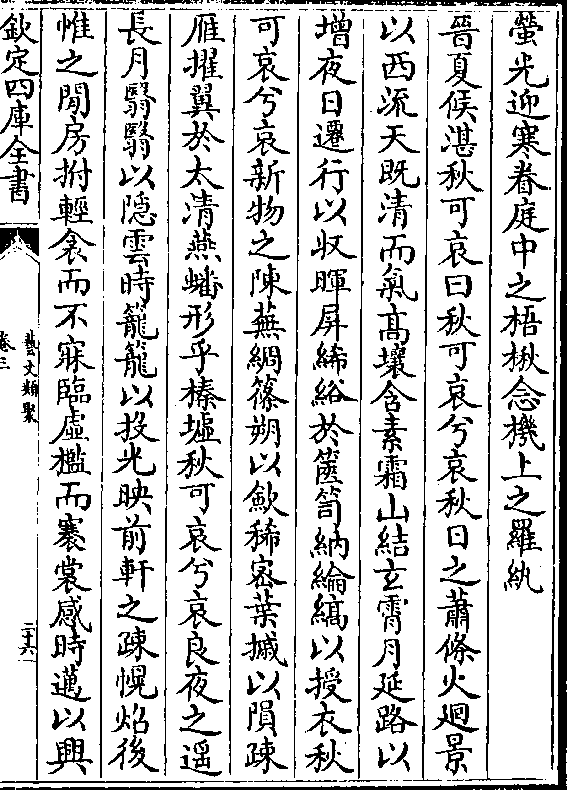 螢光迎寒眷庭中之梧楸念機上之羅紈
晉夏侯湛秋可哀曰秋可哀兮哀秋日之蕭條火廻景
以西流天既清而氣髙壤含素霜山結玄霄月延路以
增夜日遷行以收暉屏絺綌於篋笥納綸縞以授衣秋
可哀兮哀新物之陳蕪綢篠朔以歛稀密葉摵以隕踈
雁擢翼於太清燕蟠形乎榛墟秋可哀兮哀良夜之遥
長月翳翳以隠雲時籠籠以投光映前軒之踈幌炤後
帷之閒房拊輕衾而不寐臨虚檻而褰裳感時邁以興
欽定四庫全書
藝文類聚
卷三
二十六